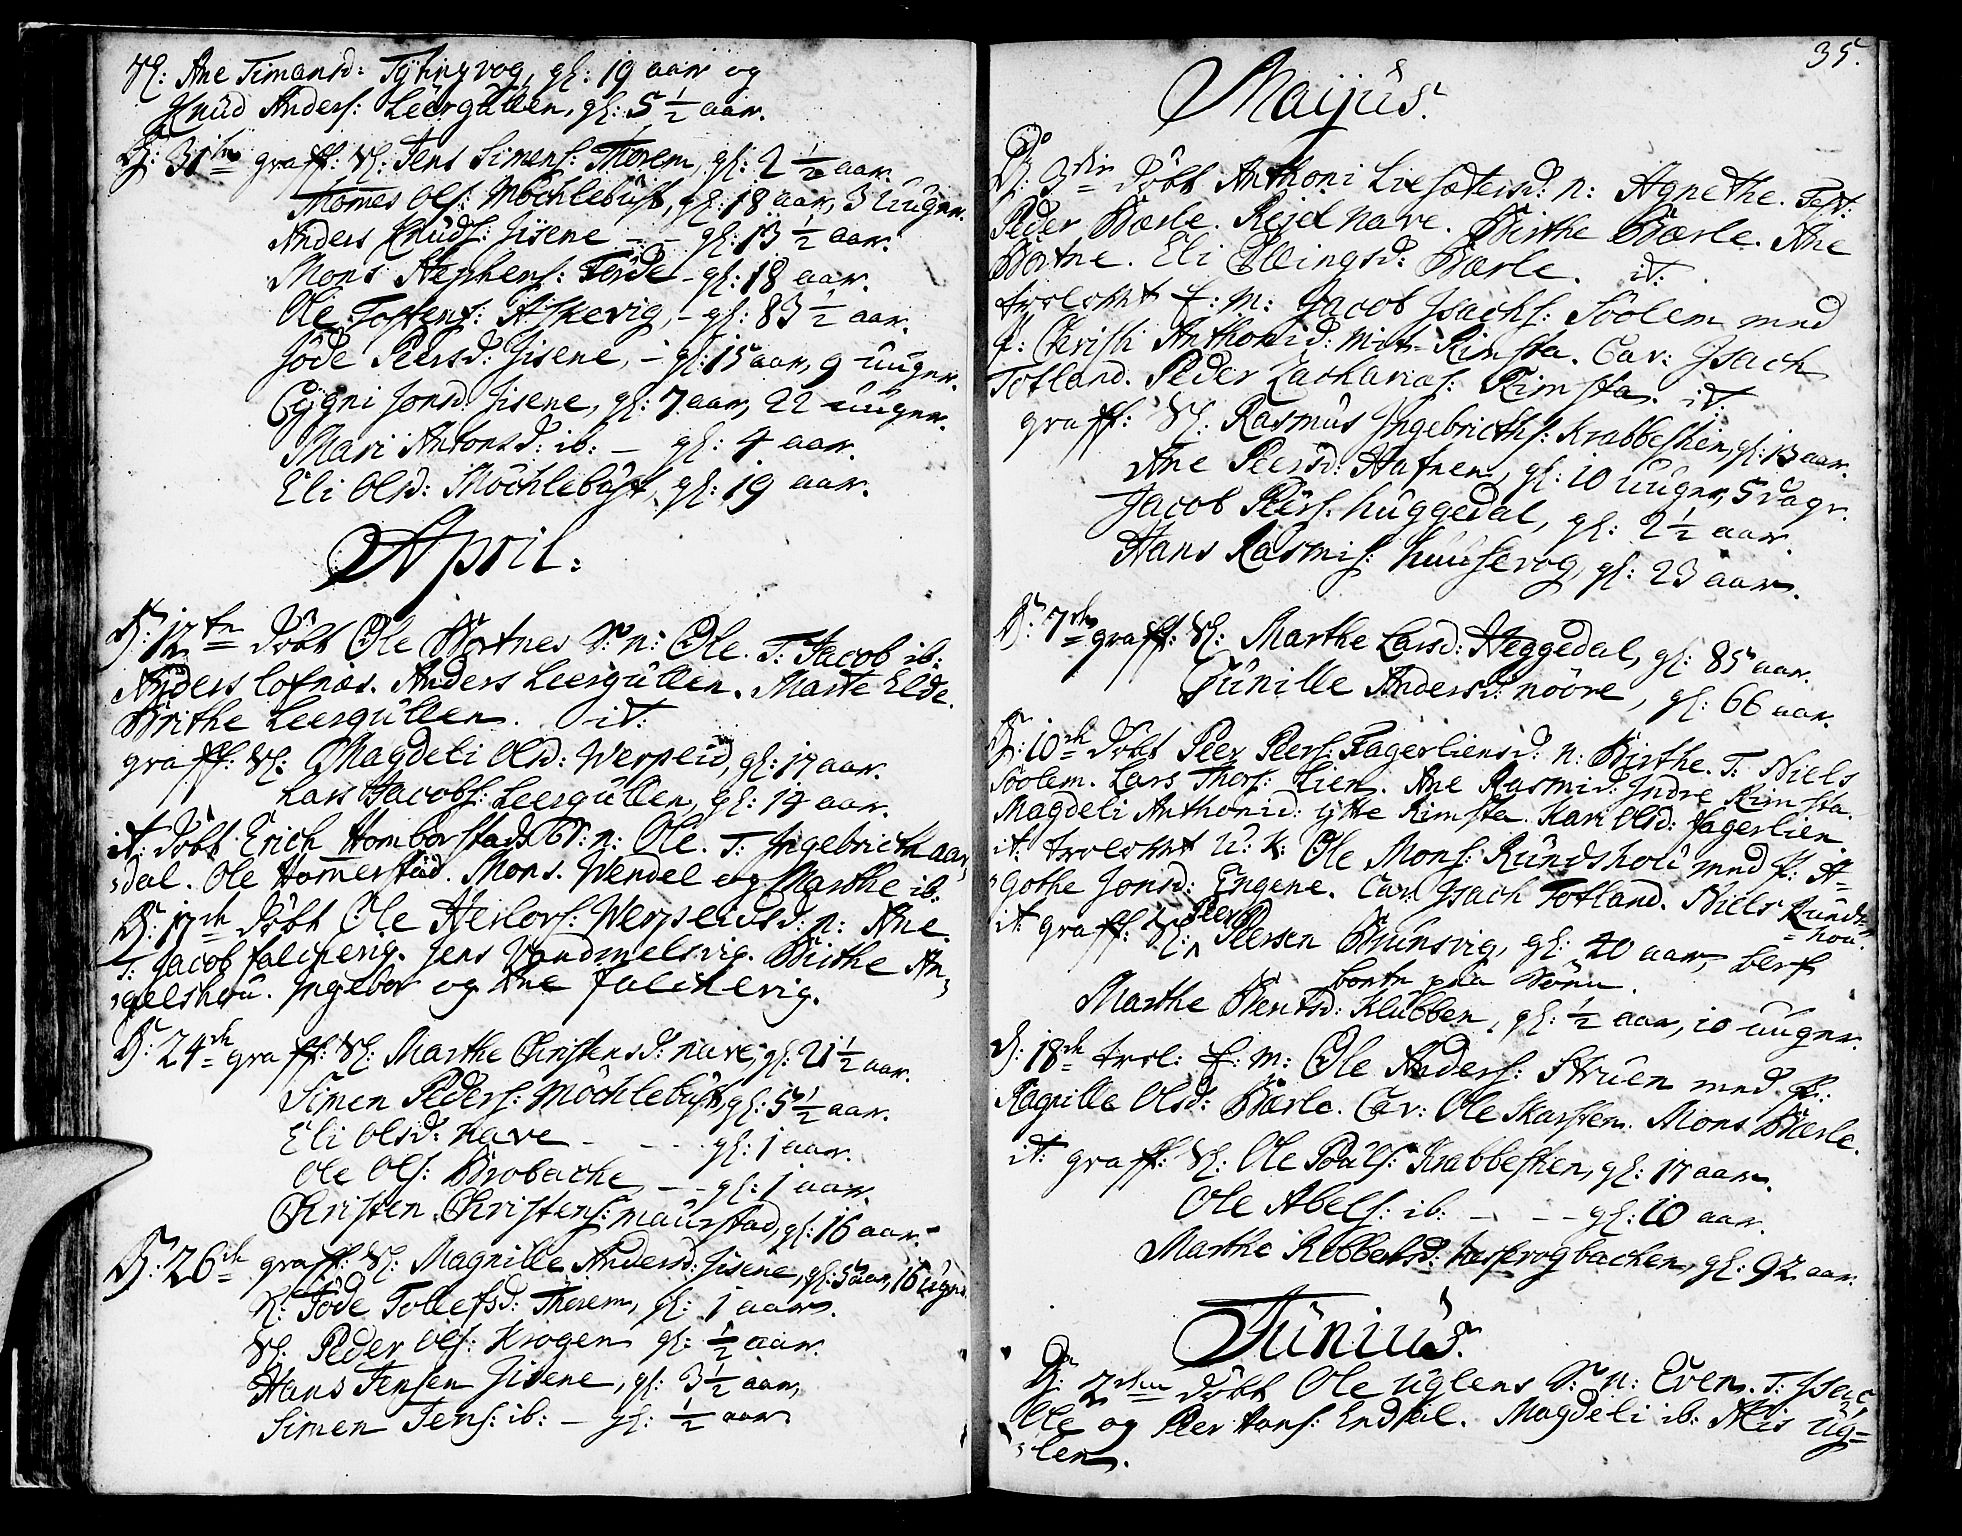 Kl: Ane Timansd: Tÿtingvog, gl: 19 aar og
Knud Anders: Leergüllen, gl: 5 1/2 aar.
D: 31te graff: Kl: Jens Simens: Thorem, gl: 2 1/2 aar.
Thomes Ols: Möchlebüst, gl: 18 aar, 3 Uuger.
Anders Knuds: Jisene - - gl: 13 1/2 aar.
Mons Stephens: Förde - gl: 18 aar.
Ole Tostens: Askevig, - gl: 83 1/2 aar.
Jöde Peersd: Jisene, - gl: 15 aar, 9 uuger.
Cÿgni Jonsd: Jisene, gl: 7 aar, 22 uuger.
Mari Antonsd: ib: - gl: 4 aar.
Eli Olsd: Möchlebüst, gl: 19 aar.
April:
D: 12te döbt Ole Bortnes S: n: Ole. T: Jacob ib:
Anders Lofnæs. Anders Leergüllen. Marte Elde.
Birthe Leergüllen. it:
graff: Kl: Magdeli Olsd: Werpeid, gl: 17 aar.
Lars Jacobs: Leergüllen, gl: 14 aar.
it: döbt Erich Homborstads S: n: Ole. T: Jngebricth aar,
dal. Ole Homerstad. Mons. Wendel og Marthe ib:
D: 17de döbt Ole Heilors: Werpeidsd: n: Ane.
T: Jacob falcheng. Jens Vandmelsvig. Birthe An,
gelshou. Jngebor og Ane falckevig.
D: 24de graff: Kl: Marthe Christensd: nave, gl: 21 1/2 aar.
Simen Peders: Möchlebüst, gl: 5 1/2 aar.
Eli Olsd: Nave - - - gl: 1 aar.
Ole Ols: Brobacke - - gl: 1 aar.
Christen Christens: maurstad, gl: 16 aar.
D: 26de graff: Kl: Magnille Andersd: Jisene, gl: 5 aar, 16 ugr.
Kl: Jöde Tollefsd: Thorem, gl: 1 aar.
Kl: Peder Ols: Krogen gl: 1/2 aar.
Hans Jensen Jisene, gl: 3 1/2 aar,
Simen Jens: ib: - gl: 1/2 aar
35.
Maijüs.
D: 3die döbt Anthoni Liesætersd: n: Agnethe. Test:
Peder Bærle. Rejel Nave. Birthe Bærle. Ane
Bortne. Eli Ellingsd: Bærle. it:
trolovet E: M: Jacob Jsachs: Söolem med
P: Christi Anthonid: mit- Rimsta. Cav: Jsach
Totland. Peder Zacharias: Rimsta. it:
graff: Kl: Rasmus Jngebricths: Krabbesteen, gl: 13 aar.
Ane Peersd: Hafnen, gl: 10 uuger, 5 dagr.
Jacob Peers: huggedal, gl: 2 1/2 aar.
Hans Rasmis: huusevog, gl: 23 aar.
D: 7de graff: Kl: Marthe Larsd: Heggedal, gl: 85 aar.
Günille Andersd: nööre, gl: 66 aar.
D: 10de döbt Peer Peers: Fagerliensd: n: Birthe. T: Niels
Söolem. Lars Thors: Lien. Ane Rasmid: Jndre Rimsta.
Magdeli Anthonid: ÿtte Rimsta. Kari Olsd: fagerlien.
it: trolovet U: K: Ole Mons: Rundshou med P: A=
gothe Jonsd: Engene. Cav: Jsach Totland. Niels Runds,
hou.
it: graff: Kl: Peer Peersen Brunsvig, gl: 40 aar,
borte paa Söen.
Marthe Bentsd: Klubben, gl: 1/2 aar, 10 uuger.
D: 18de trol: E: M: Ole Anders: Struen med P:
Ragnille Olsd: Bærle. Cav: Ole Skarsten. Mons Bærle.
it: graff: Kl: Ole Pouls: Krabbesten, gl: 17 aar.
Ole Abels: ib: - - - gl: 10 aar.
Marthe Rebbersd: husevogbachen, gl: 92 aar.
Jüniüs.
D: 2den döbt Ole uglens S: n: Even. T: Jsac,
Ole og Peer Hans: Endal. Magdeli ib: Alis üg=
len.